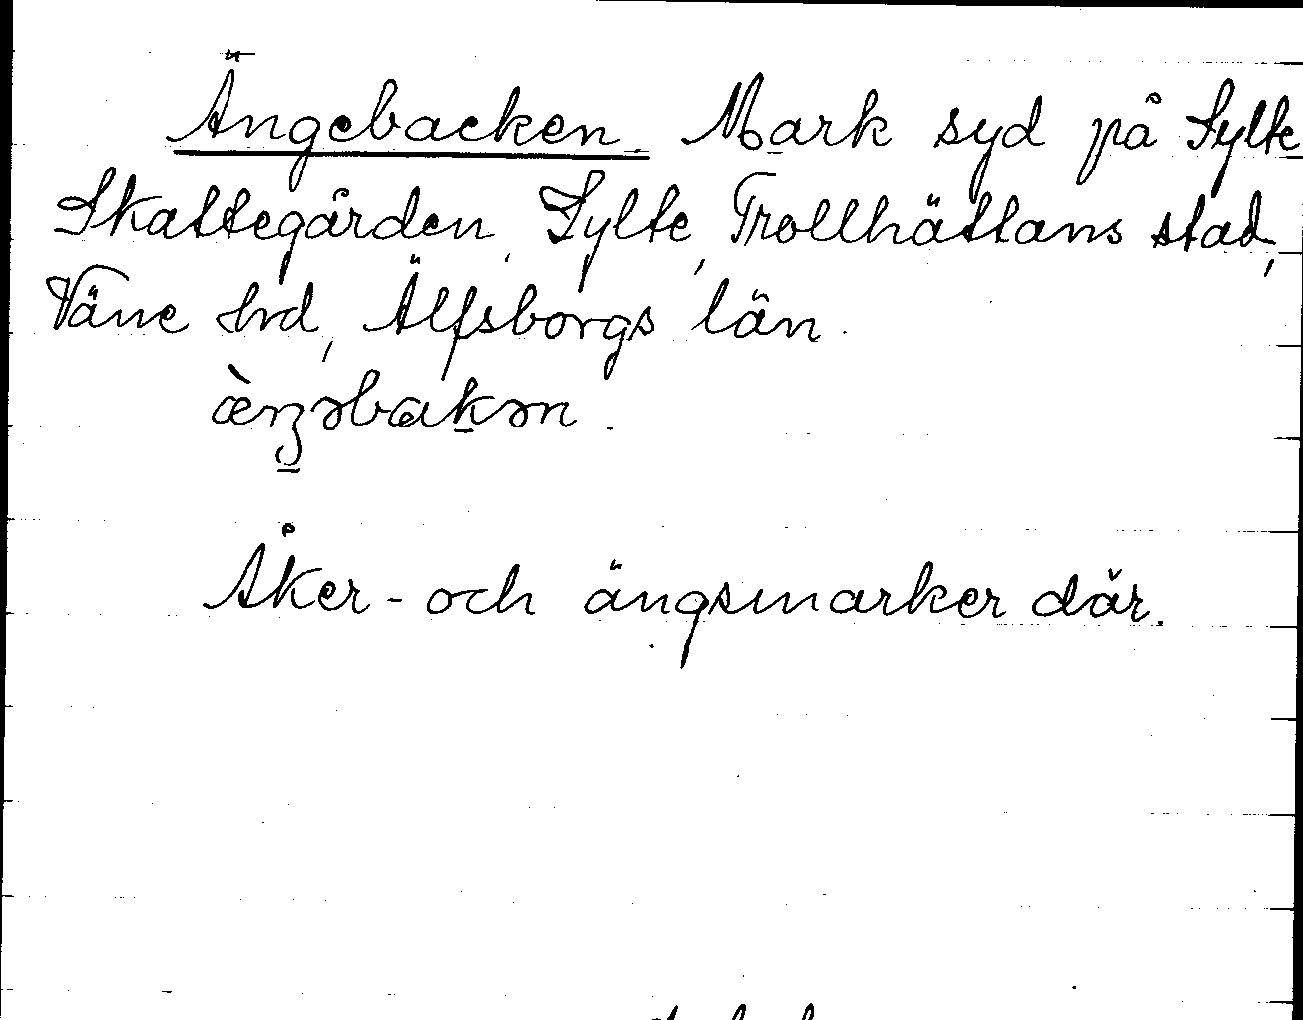 Ängebacken. Mark syd på Sylte
Skattegården, Sylte, Trollhättans stad,
Väne hd, Älfsborgs län.
æ̀nʒəbakən.
Åker- och ängsmarker där.